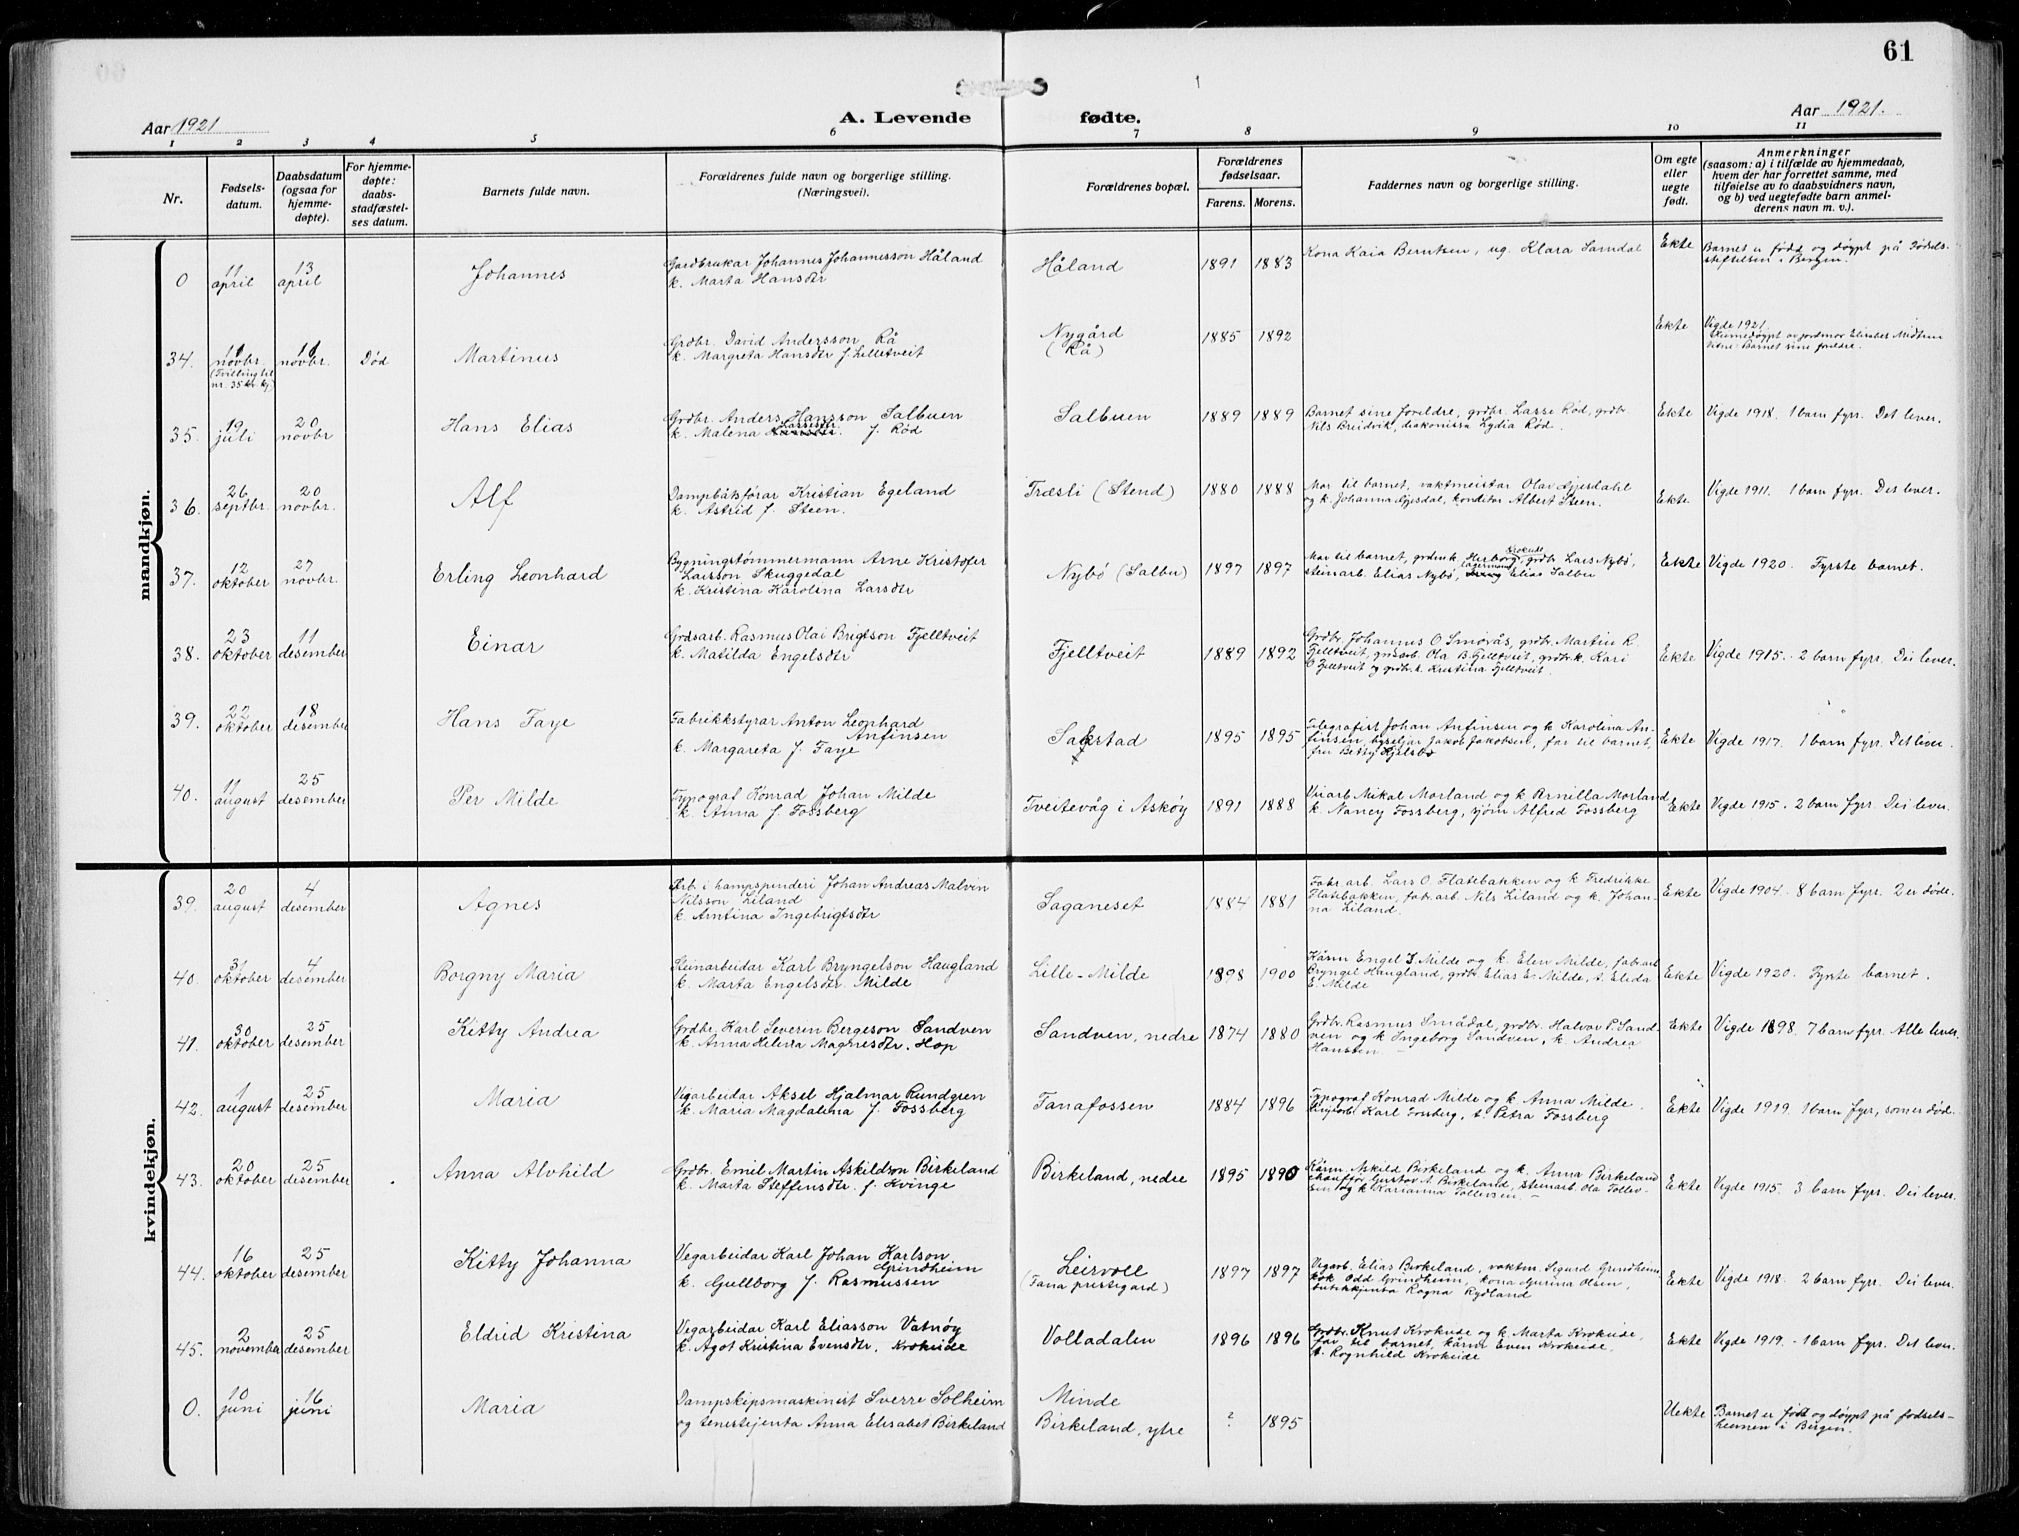 61
Aar 1921
A. Levende fødte.
Aar 1921.
1 2 3 4 5 6 7 8 9 10 11
Nr.
Fødsels-
datum.
Daabsdatum
(ogsaa for
hjemme-
døpte).
For hjemme-
døpte:
daabs-
stadfæstel-
ses datum.
Barnets fulde navn.
Forældrenes fulde navn og borgerlige stilling.
(Næringsvei).
Forældrenes bopæl.
Forældrenes
fødselsaar.
Farens. Morens.
Faddernes navn og borgerlige stilling.
Om egte
eller
uegte
født.
Anmerkninger
(saasom: a) i tilfælde av hjemmedaab,
hvem der har forrettet samme, med
tilføielse av to daabsvidners navn,
og b) ved uegtefødte barn anmel-
derens navn m. v.).
mandkjøn.
0 11 april 13 april Johannes
Gardbrukar Johannes Johannesson Håland
k. Marta Hansdtr
Håland 1891 1883
Kona Kaia Berntsen, ug. Klara Samdal
Ekte
Barnet er født og døypt på Fødsels-
stiftelsen i Bergen.
34. 11 novbr. 11 novbr. Død Martinus
(Tvilling til
nr. 35 kv. kj.)
Grdbr. David Andersson Rå
k. Margreta Hansdtr f. Lilletveit
Nygård
(Rå)
1885 1892
Ekte
Vigde 1921.
Heimedøypt av jordmor Elisabet Midttun
Vitne: Barnet sine foreldre.
35. 19 juli 20 novbr Hans Elias
Grdbr. Anders Hansson Salbuen
k. Malena Lassesdtr. f. Rød
Salbuen 1889 1889
Barnet sine foreldre, grdbr. Lasse Rød, grdbr
Nils Breidvik, diakonissa Lydia Rød.
Ekte Vigde 1918. 1 barn fyrr. Det lever.
36. 26 septbr. 20 novbr. Alf
Dampbåtsførar Kristian Egeland
k. Astrid f. Steen.
Træsli (Stend) 1880 1888
Mor til barnet, vaktmeistar Olav Gjesdahl
og k. Johanna Gjesdal, konditor Albert Steen.
Ekte. Vigde 1911. 1 barn fyrr. Det lever.
37. 12 oktober 27 novbr. Erling Leonhard
Bygningstømmermann Arne Kristofer
Larsson Skuggedal
k. Kristina Karolina Larsdtr
Nybø (Salbu) 1897 1897
Mor til barnet, grdmk. Herborg Krokeide, grdbr Lars Nybø,
steinarb. Elias Nybø, Elias Salbu
Ekte Vigde 1920. Fyrste barnet.
38. 23 oktober 11 desember Einar
Grdsarb. Rasmus Olai Brigtson Fjelltveit
k. Matilda Engelsdtr
Fjelltveit 1889 1892
Grdbr. Johannes O Smørås, grdbr. Martin R.
Fjelltveit, grdsarb. Ola B. Fjelltveit, grdbr. k. Kari
O Fjelltveit og grdbr. t. Kristina Fjelltveit.
Ekte Vigde 1915. 2 barn fyrr. Dei lever.
39. 22 oktober 18 desember Hans Faye
Fabrikkstyrar Anton Leonhard
Anfinsen
k. Margareta f. Faye
1895 1895
Telegrafist Johan Anfinsen og k Karolina An-
finsen, Jakob Jakobsen, far til barnet,
fru Betzy Kjelsbø
Ekte Vigde 1917. 1 barn fyrr. Det liver.
40. 11 august 25 desember Per Milde
Typograf Konrad Johan Milde
k. Anna f. Fossberg
Tveitevåg i Askøy 1891 1888
Visarb Mikal Morland og k Pernilla Morland
k. Nancy Fossberg, sjøm Alfred Fossberg
Ekte Vigde 1915. 2 barn fyrr. Dei lever.
kvindekjøn.
39. 20 august 4 desember Agnes
Arb. i hampspinderi Johan Andreas Malvin
Nilsson Liland
k. Antina Ingebrigtsdtr
Saganeset 1884 1881
Fabr. arb. Lars O. Flatebakken og k Fredrikke
Flatebakken, fabr. arb. Nils Liland og k. Johan-
na Liland.
Ekte Vigde 1904. 8 barn fyrr. 2 er døde.
40. 31 oktober 4 desember Borgny Maria
Steinarbeidar Karl Bryngelson Haugland
k. Marta Engelsdtr. Milde
Lille-Milde 1898 1900
Kårm Engel J. Milde og k. Elen Milde, fabr. arb
Bryngel Haugland, grdbr Elias E. Milde, t. Elida
E. Milde
Ekte Vigde 1920. Fyrste barnet.
41. 30 oktober 25 desember Kitty Andrea
Grdbr. Karl Severin Bergeson Sandven
k. Anna Helena Magnesdtr. Hop
Sandven, nedre 1874 1880
Grdbr. Rasmus Smådal, grdbr. Halvor P. Sand-
ven og k Ingeborg Sandven, k. Andrea
Hansten.
Ekte Vigde 1898. 7 barn fyrr. Alle lever.
42. 1 august 25 desember Maria
Vegarbeidar Aksel Hjalmar Rundgren
k. Maria Magdalena f. Fossberg
Fanafossen 1884 1896
Typograf Konrad Milde og k Anna Milde.
Karl Fossberg, t. Petra Fossberg
Ekte Vigde 1919. 1 barn fyrr, som er død.
43. 20 oktober 25 desember Anna Alvhild
Grdbr. Emil Martin Askildson Birkeland
k. Marta Steffensdtr. f. Kvinge
Birkeland, nedre 1895 1890
Kårm. Askild Birkeland og k. Anna Birkeland
chauffør Gustav A. Birkeland, steinarb. Ola Tollev-
sen og k Karianna Tollevsen.
Ekte Vigde 1915. 3 barn fyrr. Dei lever.
44. 16 oktober 25 desember Kitty Johanna
Vegarbeidar Karl Johan Karlson
Grindheim
k. Gullborg f. Rasmussen
Leirvoll
(Fana prestegard)
1897 1897
Vegarb. Elias Birkeland, vaktm. Sigurd Grindheim
kok Odd Grindheim, kona Gurina Olsen,
butikkjenta Ragna Rydland
Ekte Vigde 1918. 2 barn fyrr. Dei lever.
45. 2 november 25 desember Eldrid Kristina
Vegarbeidar Karl Eliasson Vatnøy
k. Agot Kristina Evensdtr. Krokeide
Volladalen 1896 1896
Grdbr. Knut Krokeide og k. Marta Krokeide,
far til barnet, kårm Even Krokeide,
t. Ragnhild Krokeide
Ekte Vigde 1919. 1 barn fyrr. Det lever.
0. 10 juni 16 juni Maria
Dampskipsmaskinist Sverre Solheim
og tenestejenta Anna Elisabet Birkeland
Minde
Birkeland, ytre
? 1895
Uekte
Barnet er født og døypt på fødsels-
heimen i Bergen.